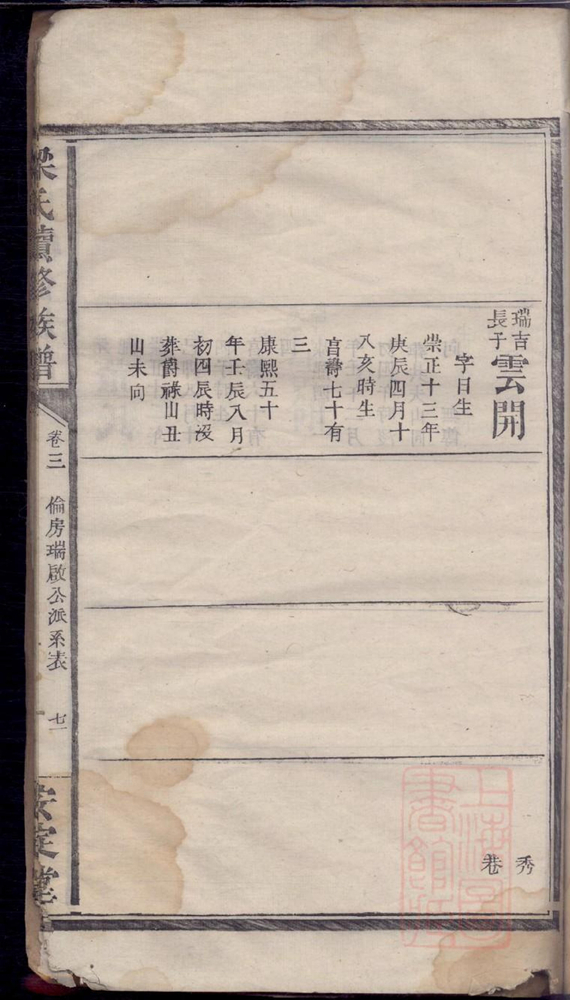 瑞吉
長子
雲開
字日生
崇正十三年
庚辰四月十
八亥時生
享壽七十有
三
康熙五十
年壬辰八月
初四辰時沒
葬爵祿山丑
山未向
秀
巷
梁氏續修族譜
卷三
倫房瑞啟公派系表
七一
安定堂
上海圖
書館藏